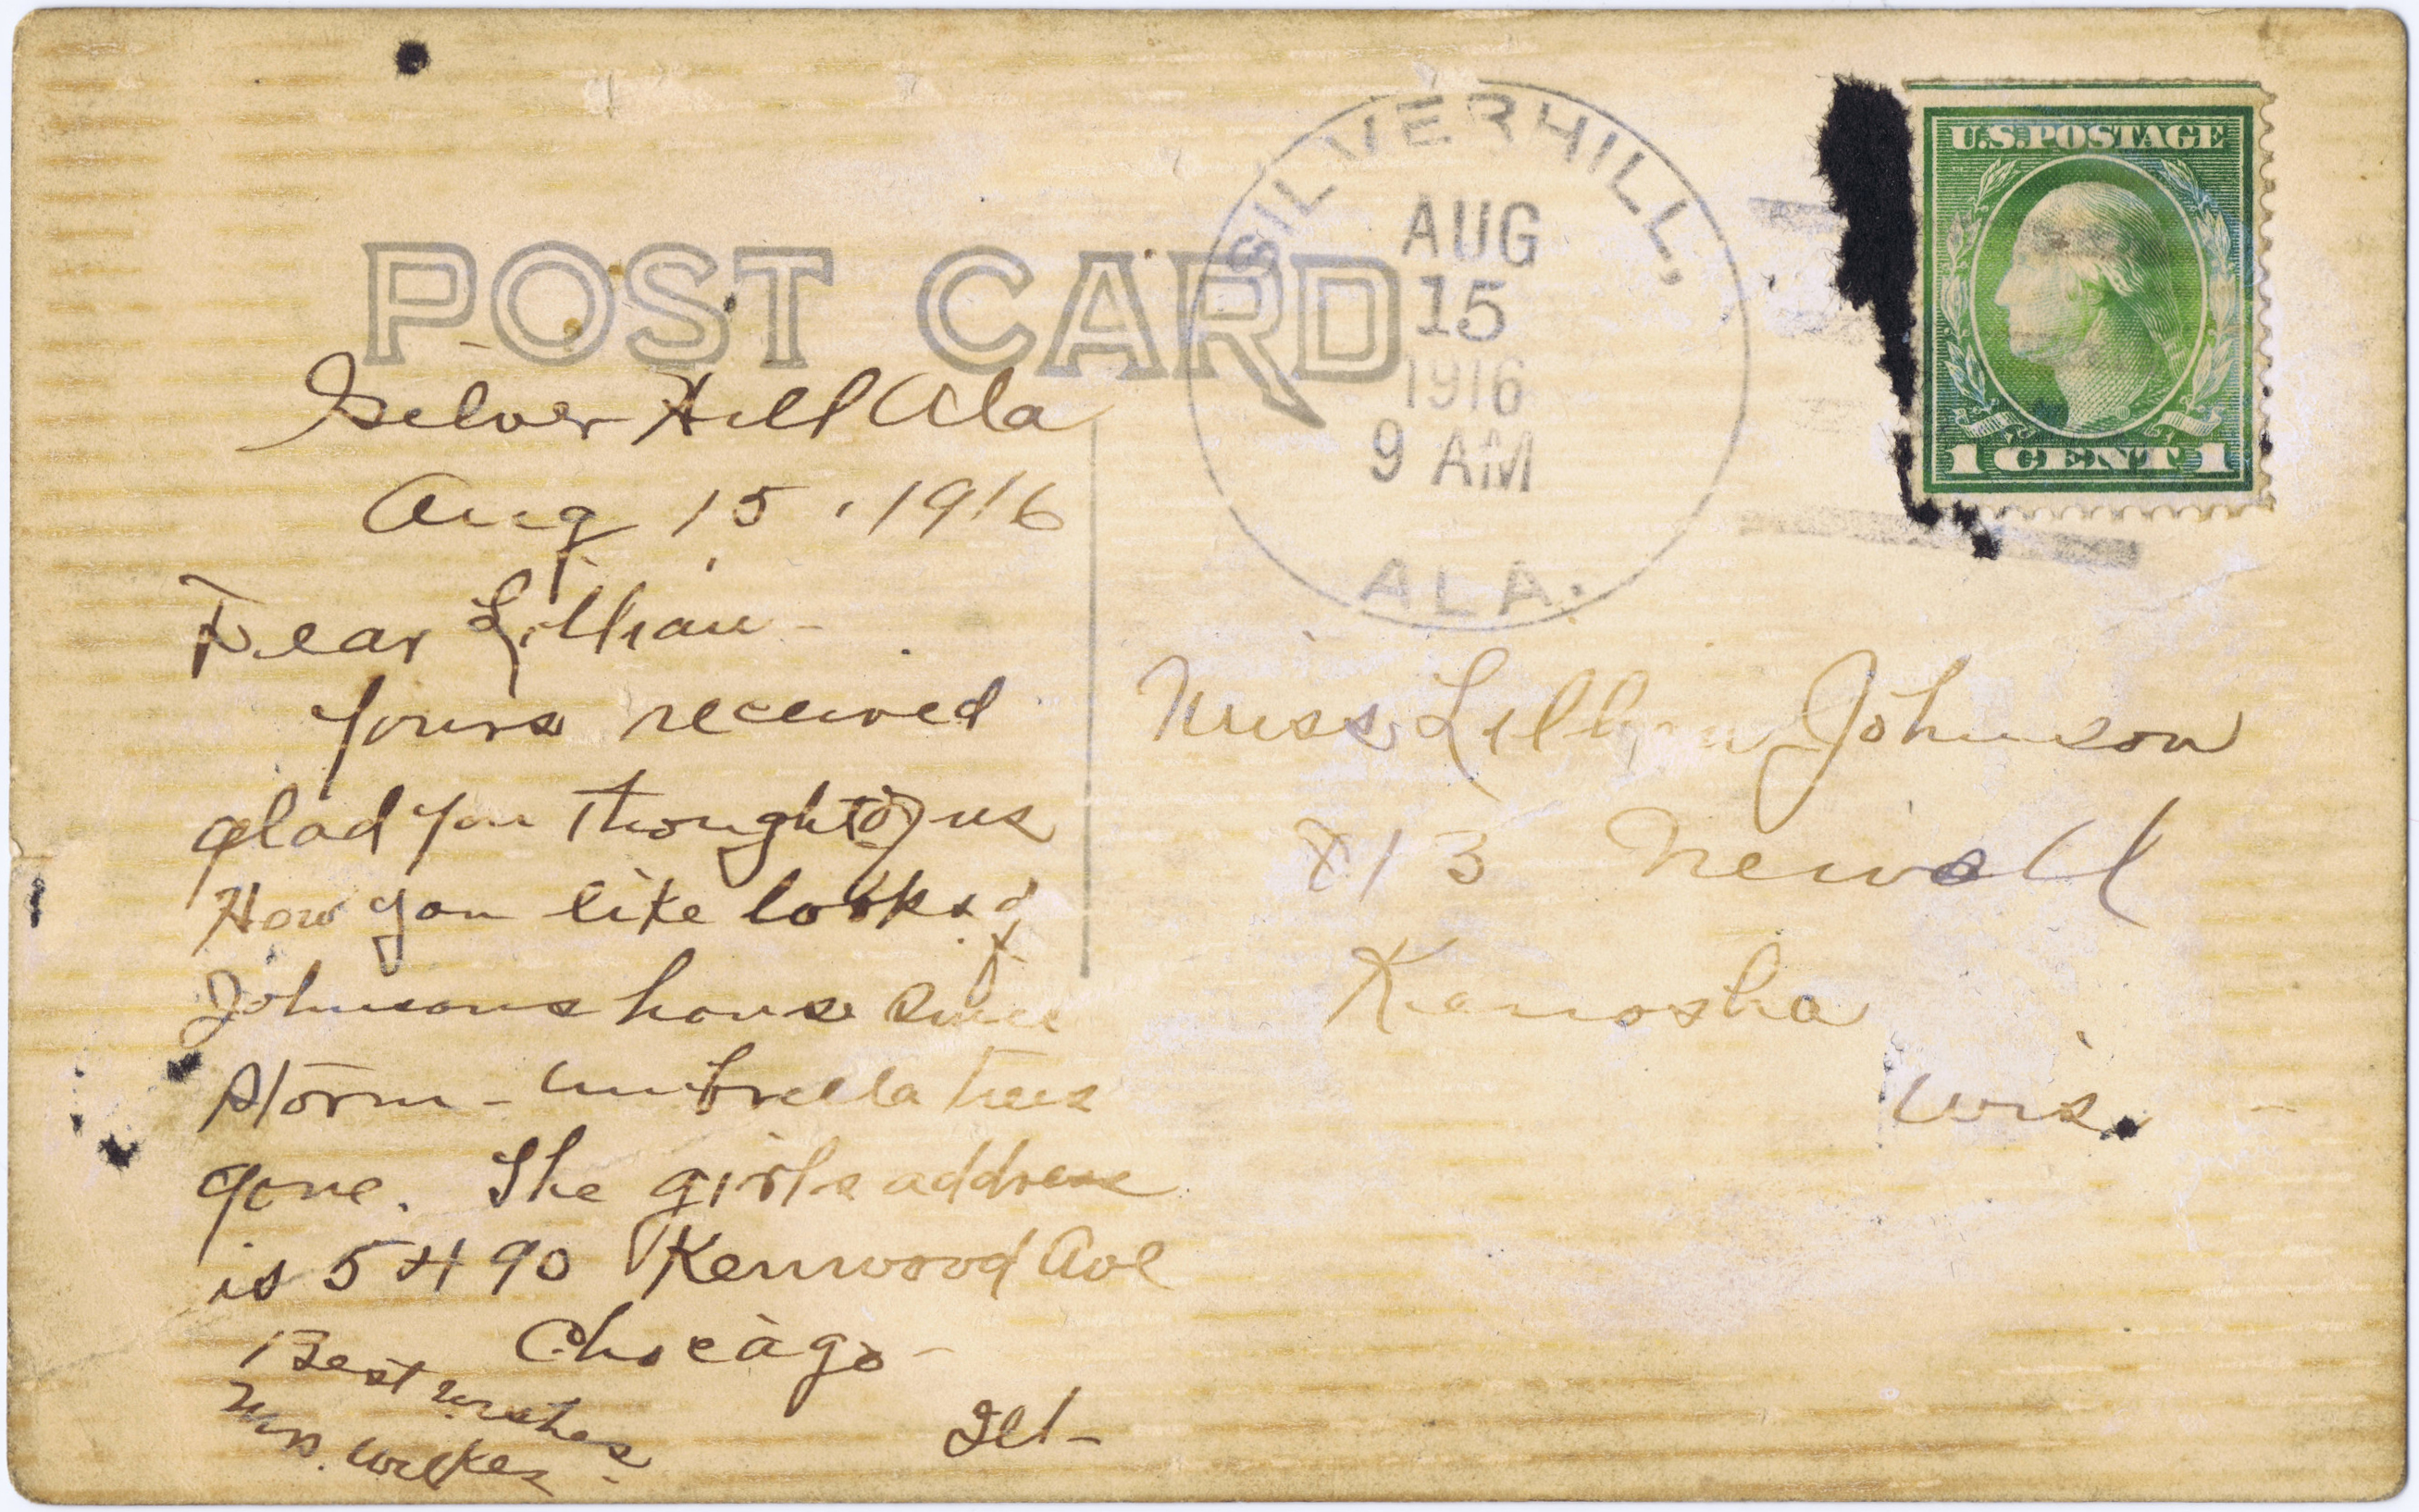 POST CARD
SILVERHILL,
AUG
15
1916
9 AM
ALA.
U.S. POSTAGE
1 CENT 1
Silver Hill Ala
Aug 15, 1916
Dear Lillian -
Yours received
glad you thought of us
How you like looks of
Johnsons house since
storm - umbrella trees
gone. The girls address
is 5490 Kenwood Ave
Chicago -
Ill -
Best wishes
Mrs. Wilkes
Miss Lillian Johnson
813 Newell
Kenosha
Wis.